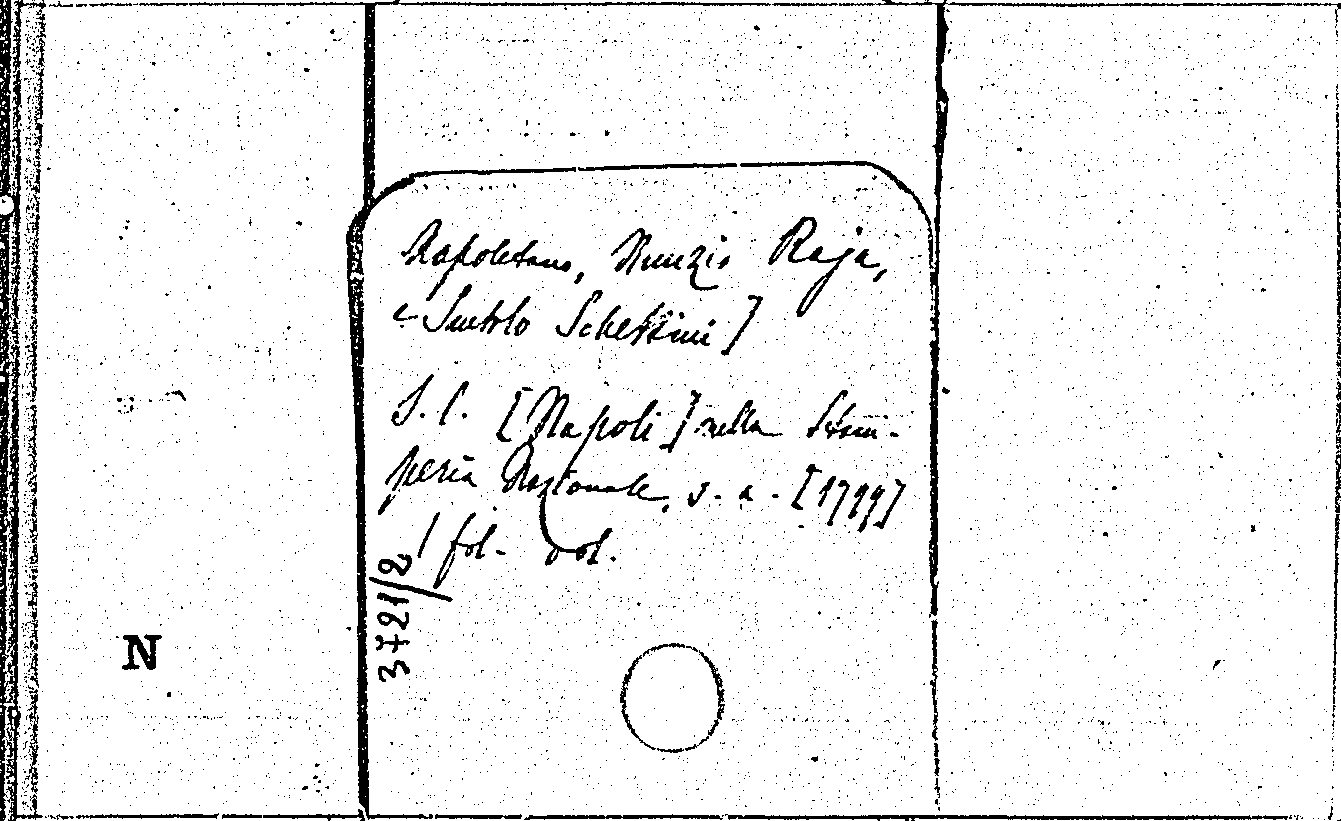 Napoletano, Nunzio Raja,
e Schettini]
S. l. [Napoli] nella Stam-
peria Nazionale, s. a. [1799]
1 fol. vol.
3721/2
N